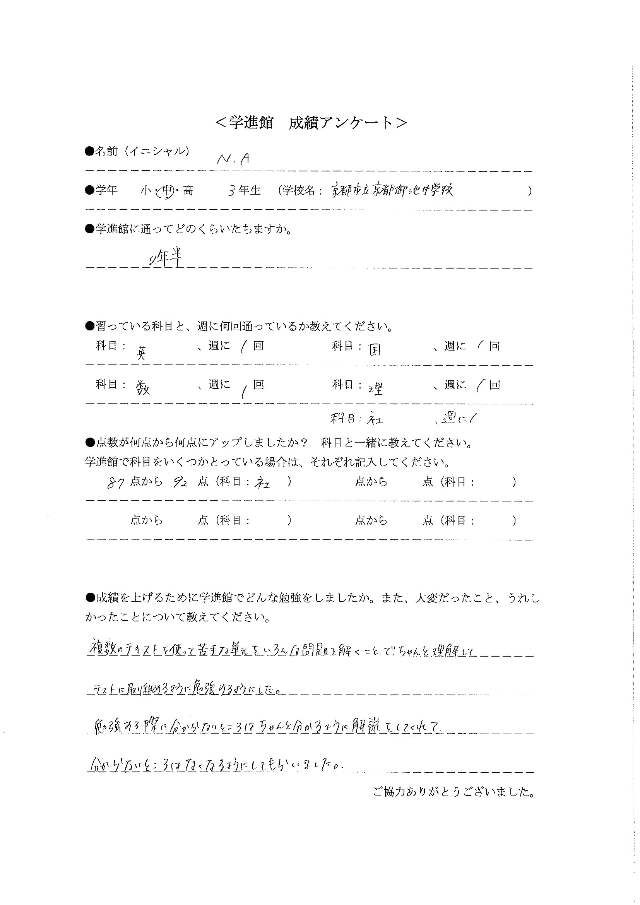 ＜学進館　成績アンケート＞
●名前（イニシャル）　N.A
●学年　小・中・高　3年生　（学校名：京都市立京都御池中学校　）
●学進館に通ってどのくらいたちますか。
0年半
●習っている科目と、週に何回通っているか教えてください。
科目：英　、週に1回　科目：国　、週に1回
科目：数　、週に1回　科目：理　、週に1回
科目：社　、週に1
●点数が何点から何点にアップしましたか？　科目と一緒に教えてください。
学進館で科目をいくつかとっている場合は、それぞれ記入してください。
87点から92点（科目：社　）　点から　点（科目：　）
点から　点（科目：　）　点から　点（科目：　）
●成績を上げるために学進館でどんな勉強をしましたか。また、大変だったこと、うれし
かったことについて教えてください。
複数のテキストを使って苦手な単元をいろんな問題を解くことで、ちゃんと理解して
テストに取り組めるように勉強するようにした。
勉強する際に分からないところはちゃんと分かるように解説をしてくれて
分からないところはなくなるようにしてもらいました。
ご協力ありがとうございました。